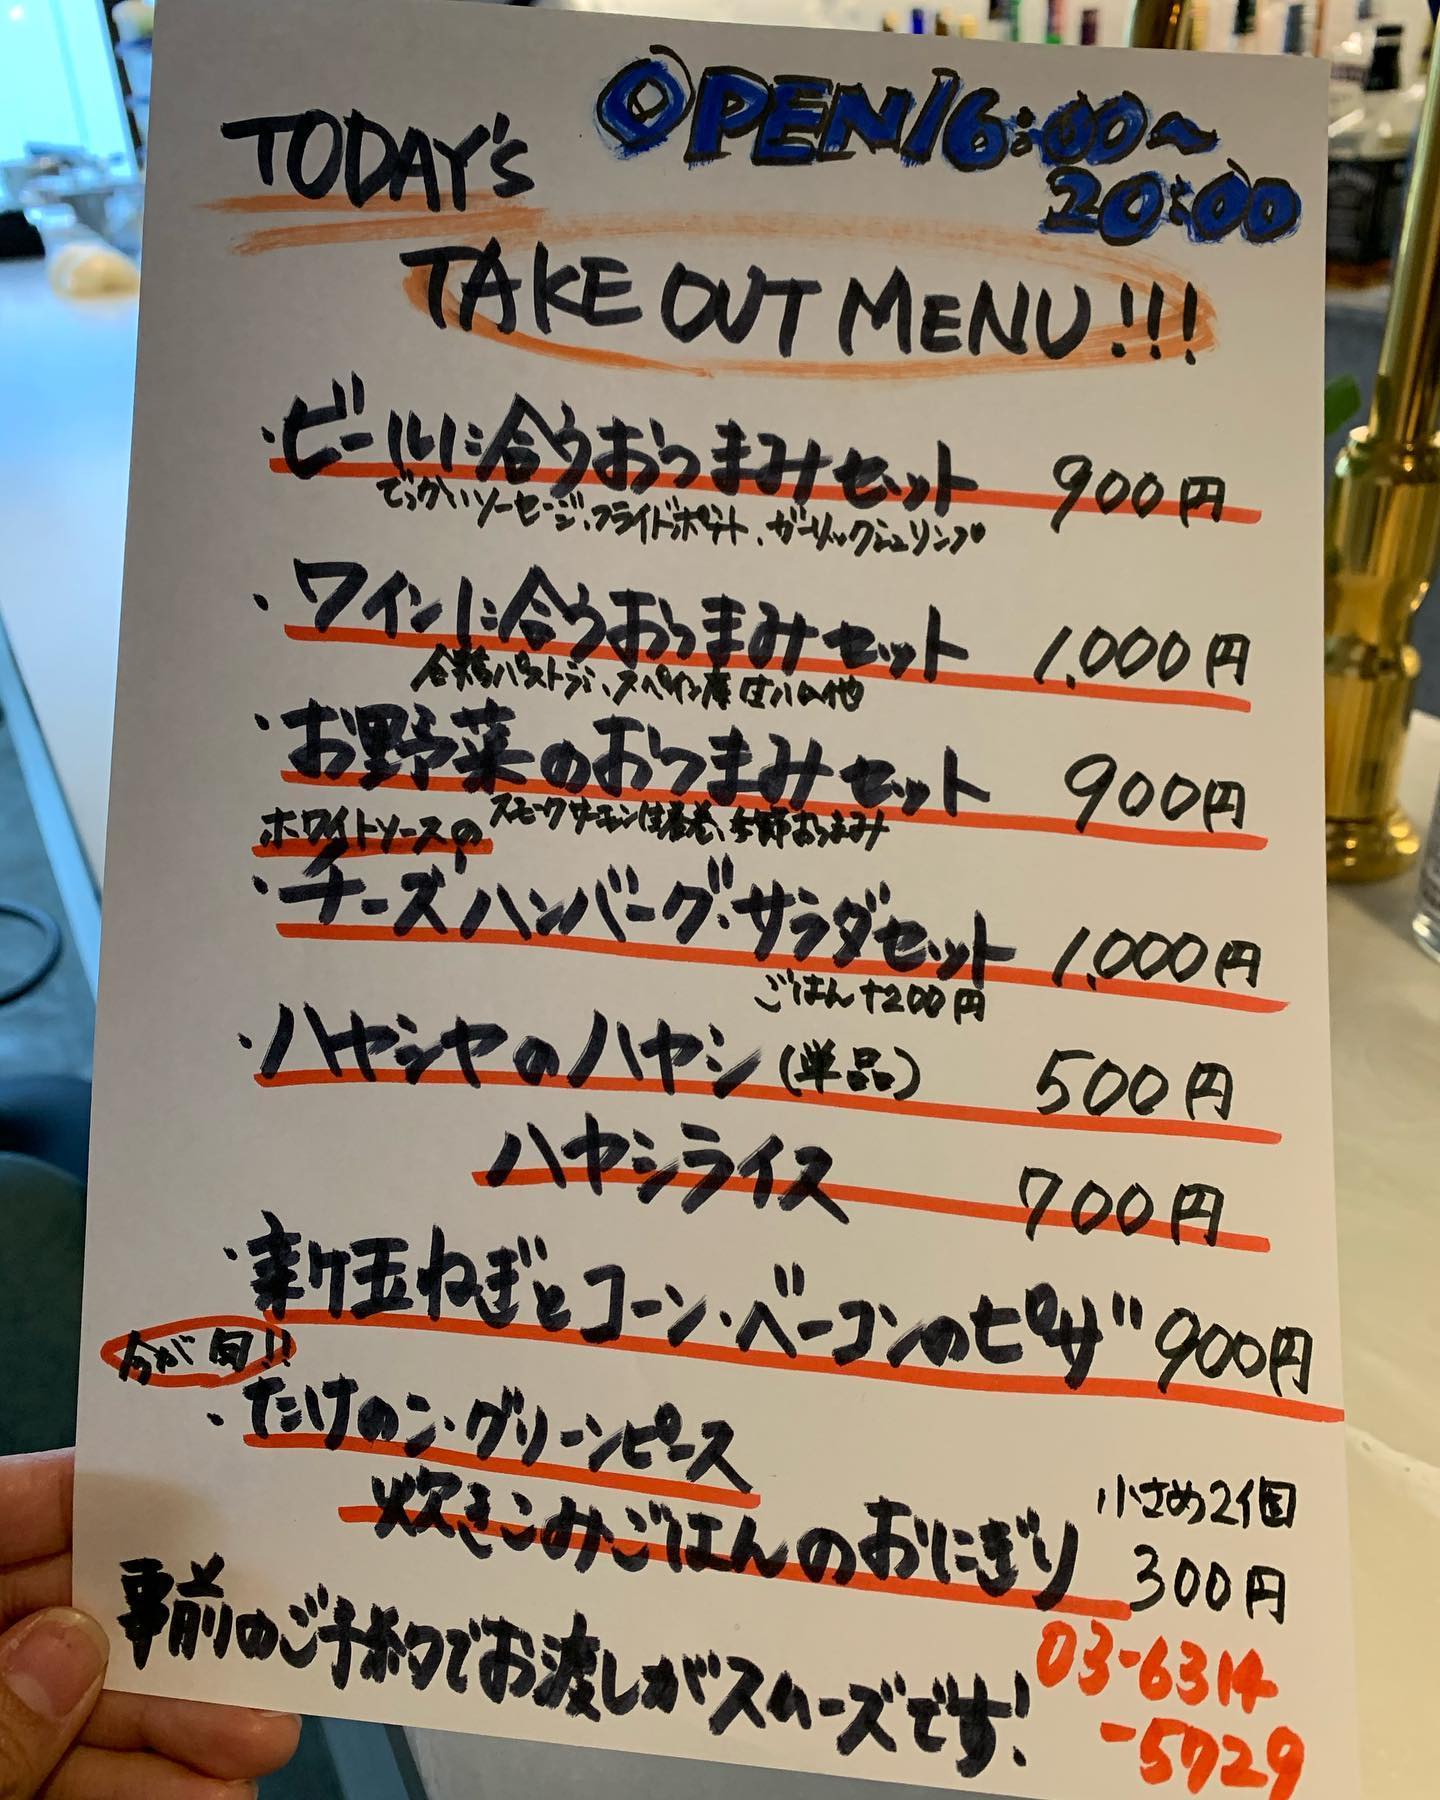 OPEN 16:00~
20:00
TODAY's
TAKE OUT MENU!!!
・ビールに合うおつまみセット 900円
でっかいソーセージ、フライドポテト、ガーリックシュリンプ
・ワインに合うおつまみセット 1,000円
合鴨パストラミ、スペイン産生ハム他
・お野菜のおつまみセット 900円
スモークサーモン生春巻、季節おつまみ
ホワイトソースの
・チーズハンバーグ・サラダセット 1,000円
ごはん+200円
・ハヤシヤのハヤシ(単品) 500円
ハヤシライス 700円
・新玉ねぎとコーン・ベーコンのピザ 900円
今が旬!!
・たけのこ・グリーンピース
炊きこみごはんのおにぎり 小さめ2個
300円
事前のご予約でお渡しがスムーズです!
03-6314
-5729